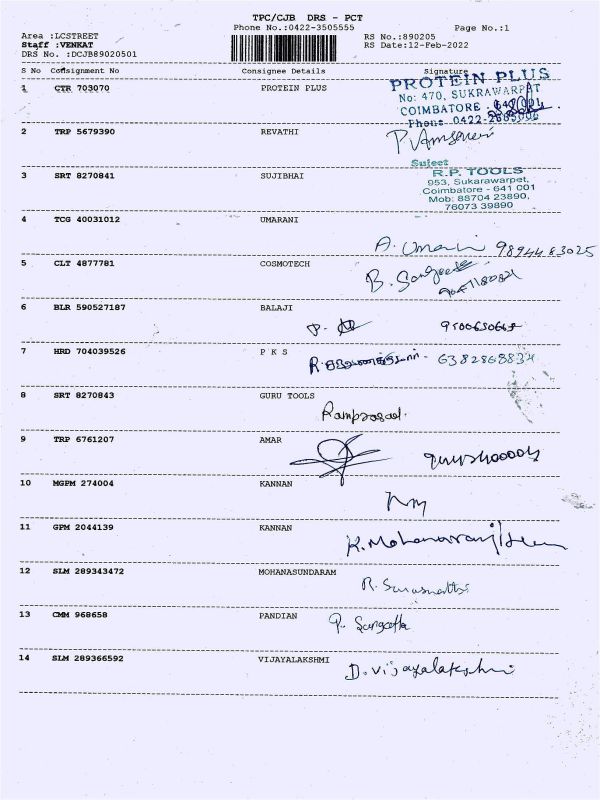 TPC/CJB DRS - PCT
Phone No.:0422-3505555 Page No.:1
Area :LCSTREET RS No.:890205
Staff :VENKAT RS Date:12-Feb-2022
DRS No. :DCJB89020501
S No Consignment No Consignee Details Signature
1 CTR 703070 PROTEIN PLUS
PROTEIN PLUS
No: 470, SUKRAWARPET
COIMBATORE -
Phone: 0422-
2 TRP 5679390 REVATHI
Sujeet
3 SRT 8270841 SUJIBHAI
R.P. TOOLS
953, Sukarawarpet,
Coimbatore - 641 001
Mob: 88704 23890,
76073 39890
4 TCG 40031012 UMARANI
A. Umarani 9894483025
5 CLT 4877781 COSMOTECH
B. Sangeetha
6 BLR 590527187 BALAJI
P.
7 HRD 704039526 P K S
R. 6382868834
8 SRT 8270843 GURU TOOLS
Ramprasad.
9 TRP 6761207 AMAR
10 MGPM 274004 KANNAN
11 GPM 2044139 KANNAN
12 SLM 289343472 MOHANASUNDARAM
R. Saraswathi
13 CMM 968658 PANDIAN
P. Sangeetha
14 SLM 289366592 VIJAYALAKSHMI
D. Vijayalakshmi